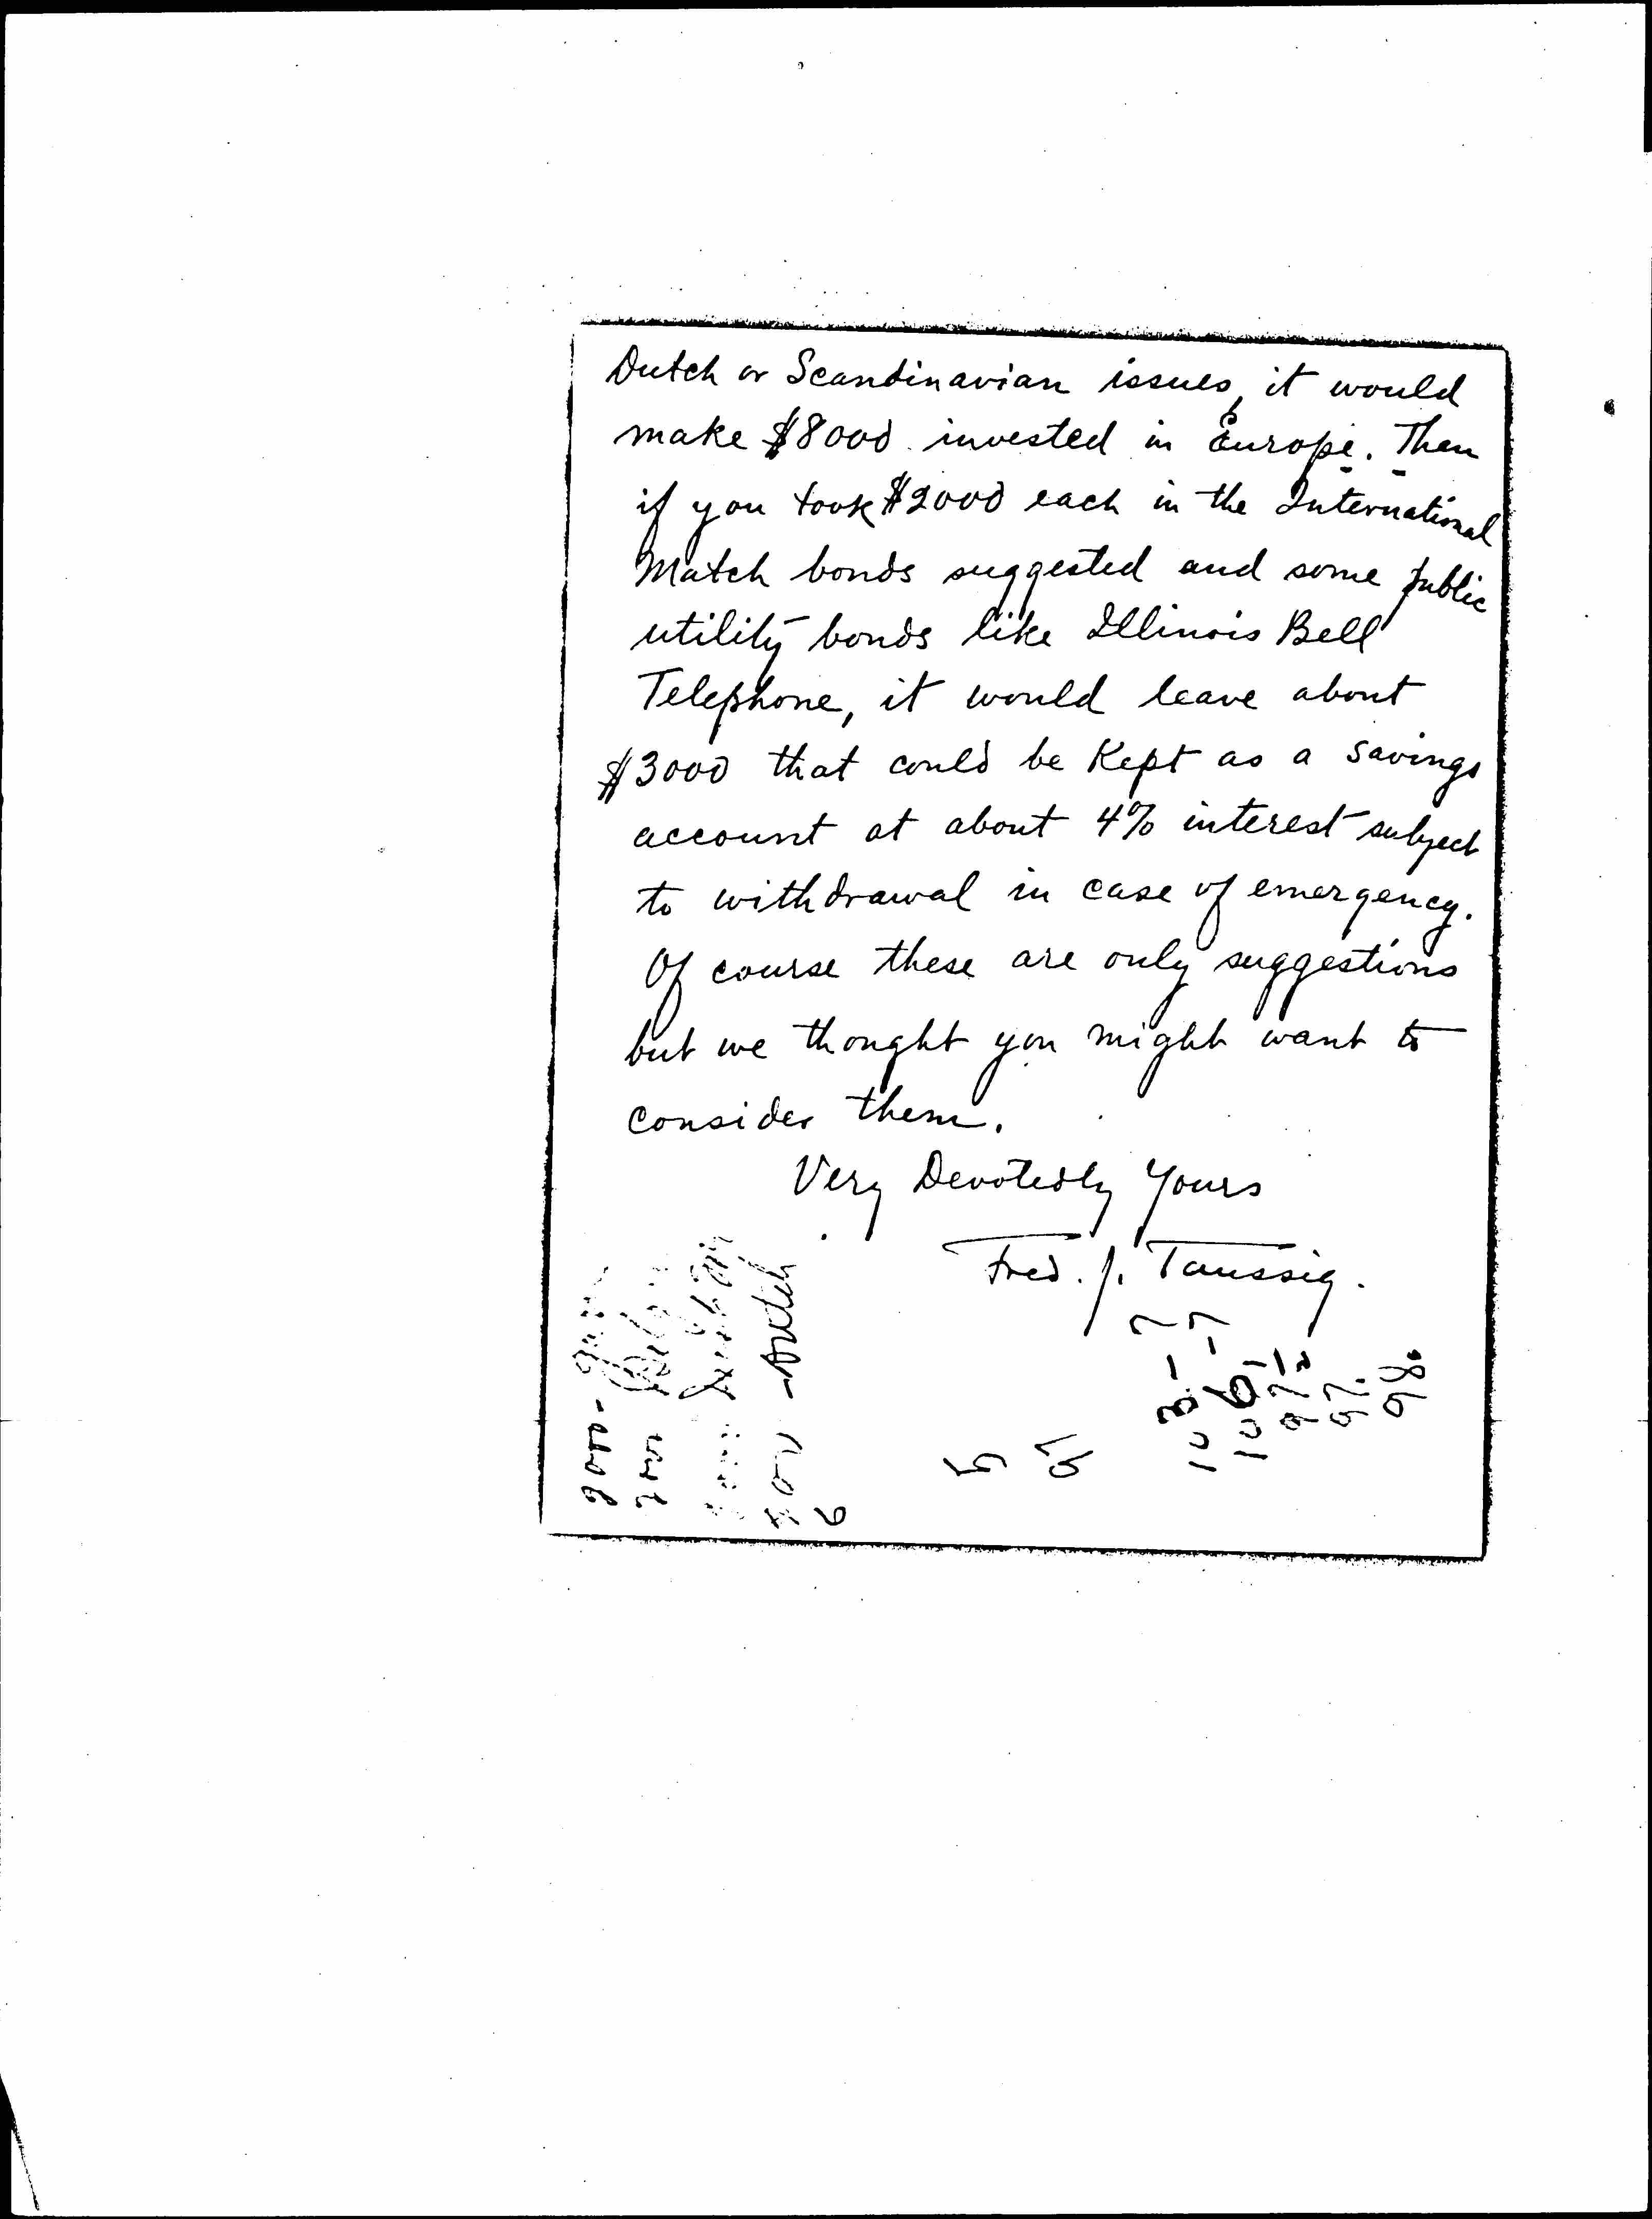 Dutch or Scandinavian issues, it would
make $8000 invested in Europe. Then
if you took $2000 each in the International
Match bonds suggested and some public
utility bonds like Illinois Bell
Telephone, it would leave about
$3000 that could be Kept as a savings
account at about 4% interest subject
to withdrawal in case of emergency.
Of course these are only suggestions
but we thought you might want to
consider them.
Very Devotedly Yours
Fred. J. Taussig.
2000-
2000
- Dutch
6
5
97
103 - 7
106 - 7
97 1/2
97.
98.